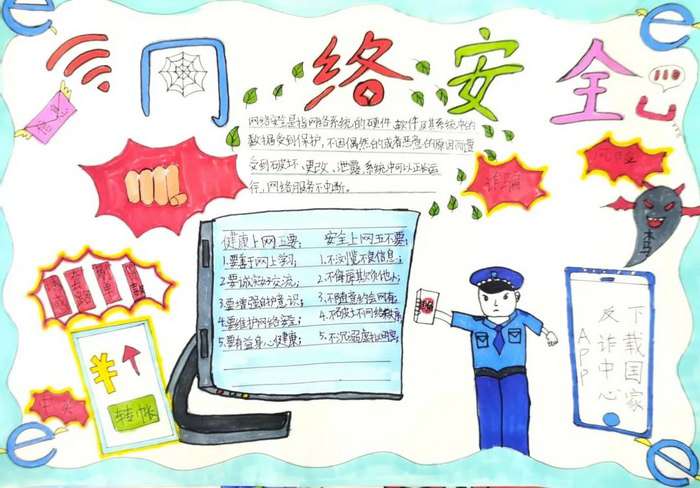 网络安全
网络安全是指网络系统的硬件,软件及其系统中的
数据受到保护,不因偶然的或者恶意的原因而遭
受到破坏、更改、泄露,系统中可以正常运
行,网络服务不中断。
诈骗
木马
健康上网五要;
安全上网五不要;
1.要善于网上学习;
1.不浏览不良信息;
2.要诚实友好交流;
3.要增强自护意识;
3.不随意约会网友;
4.要维护网络安全;
5.要有益身心健康;
¥
转帐
下载国家
反诈中心
APP